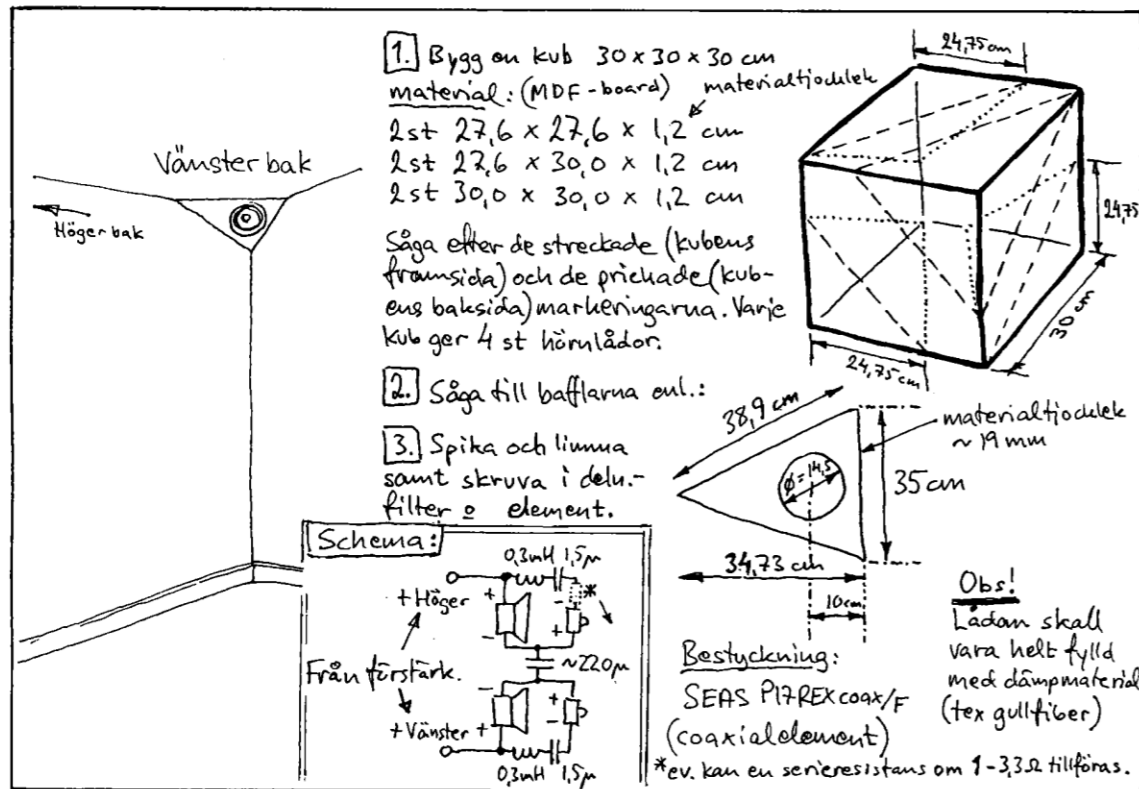 Vänster bak
Höger bak
1. Bygg en kub 30 x 30 x 30 cm
material: (MDF-board)
materialtjocklek
2st 27,6 x 27,6 x 1,2 cm
2st 27,6 x 30,0 x 1,2 cm
2st 30,0 x 30,0 x 1,2 cm
Såga efter de streckade (kubens
framsida) och de prickade (kub-
ens baksida) markeringarna. Varje
kub ger 4 st hörnlådor.
24,75 cm
24,75
30 cm
24,75 cm
2. Såga till bafflarna enl.:
3. Spika och limma
samt skruva i deln.-
filter o element.
38,9 cm
materialtjocklek
~ 19 mm
ø = 14,5
35 cm
34,73 cm
10 cm
Schema:
0,3mH 1,5µ
+ Höger
+
-
*
-
+
Från förstärk.
~220µ
-
+
+
-
+ Vänster
0,3mH 1,5µ
Bestyckning:
SEAS P17REX coax/F
(coaxialelement)
Obs!
Lådan skall
vara helt fylld
med dämpmaterial
(tex gullfiber)
*ev. kan en serieresistans om 1-3,3Ω tillföras.